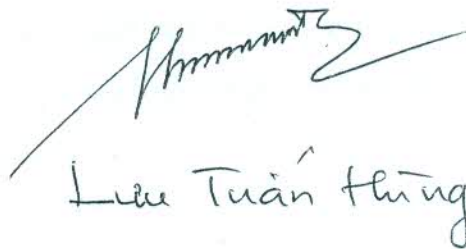 Lưu Tuấn Hùng